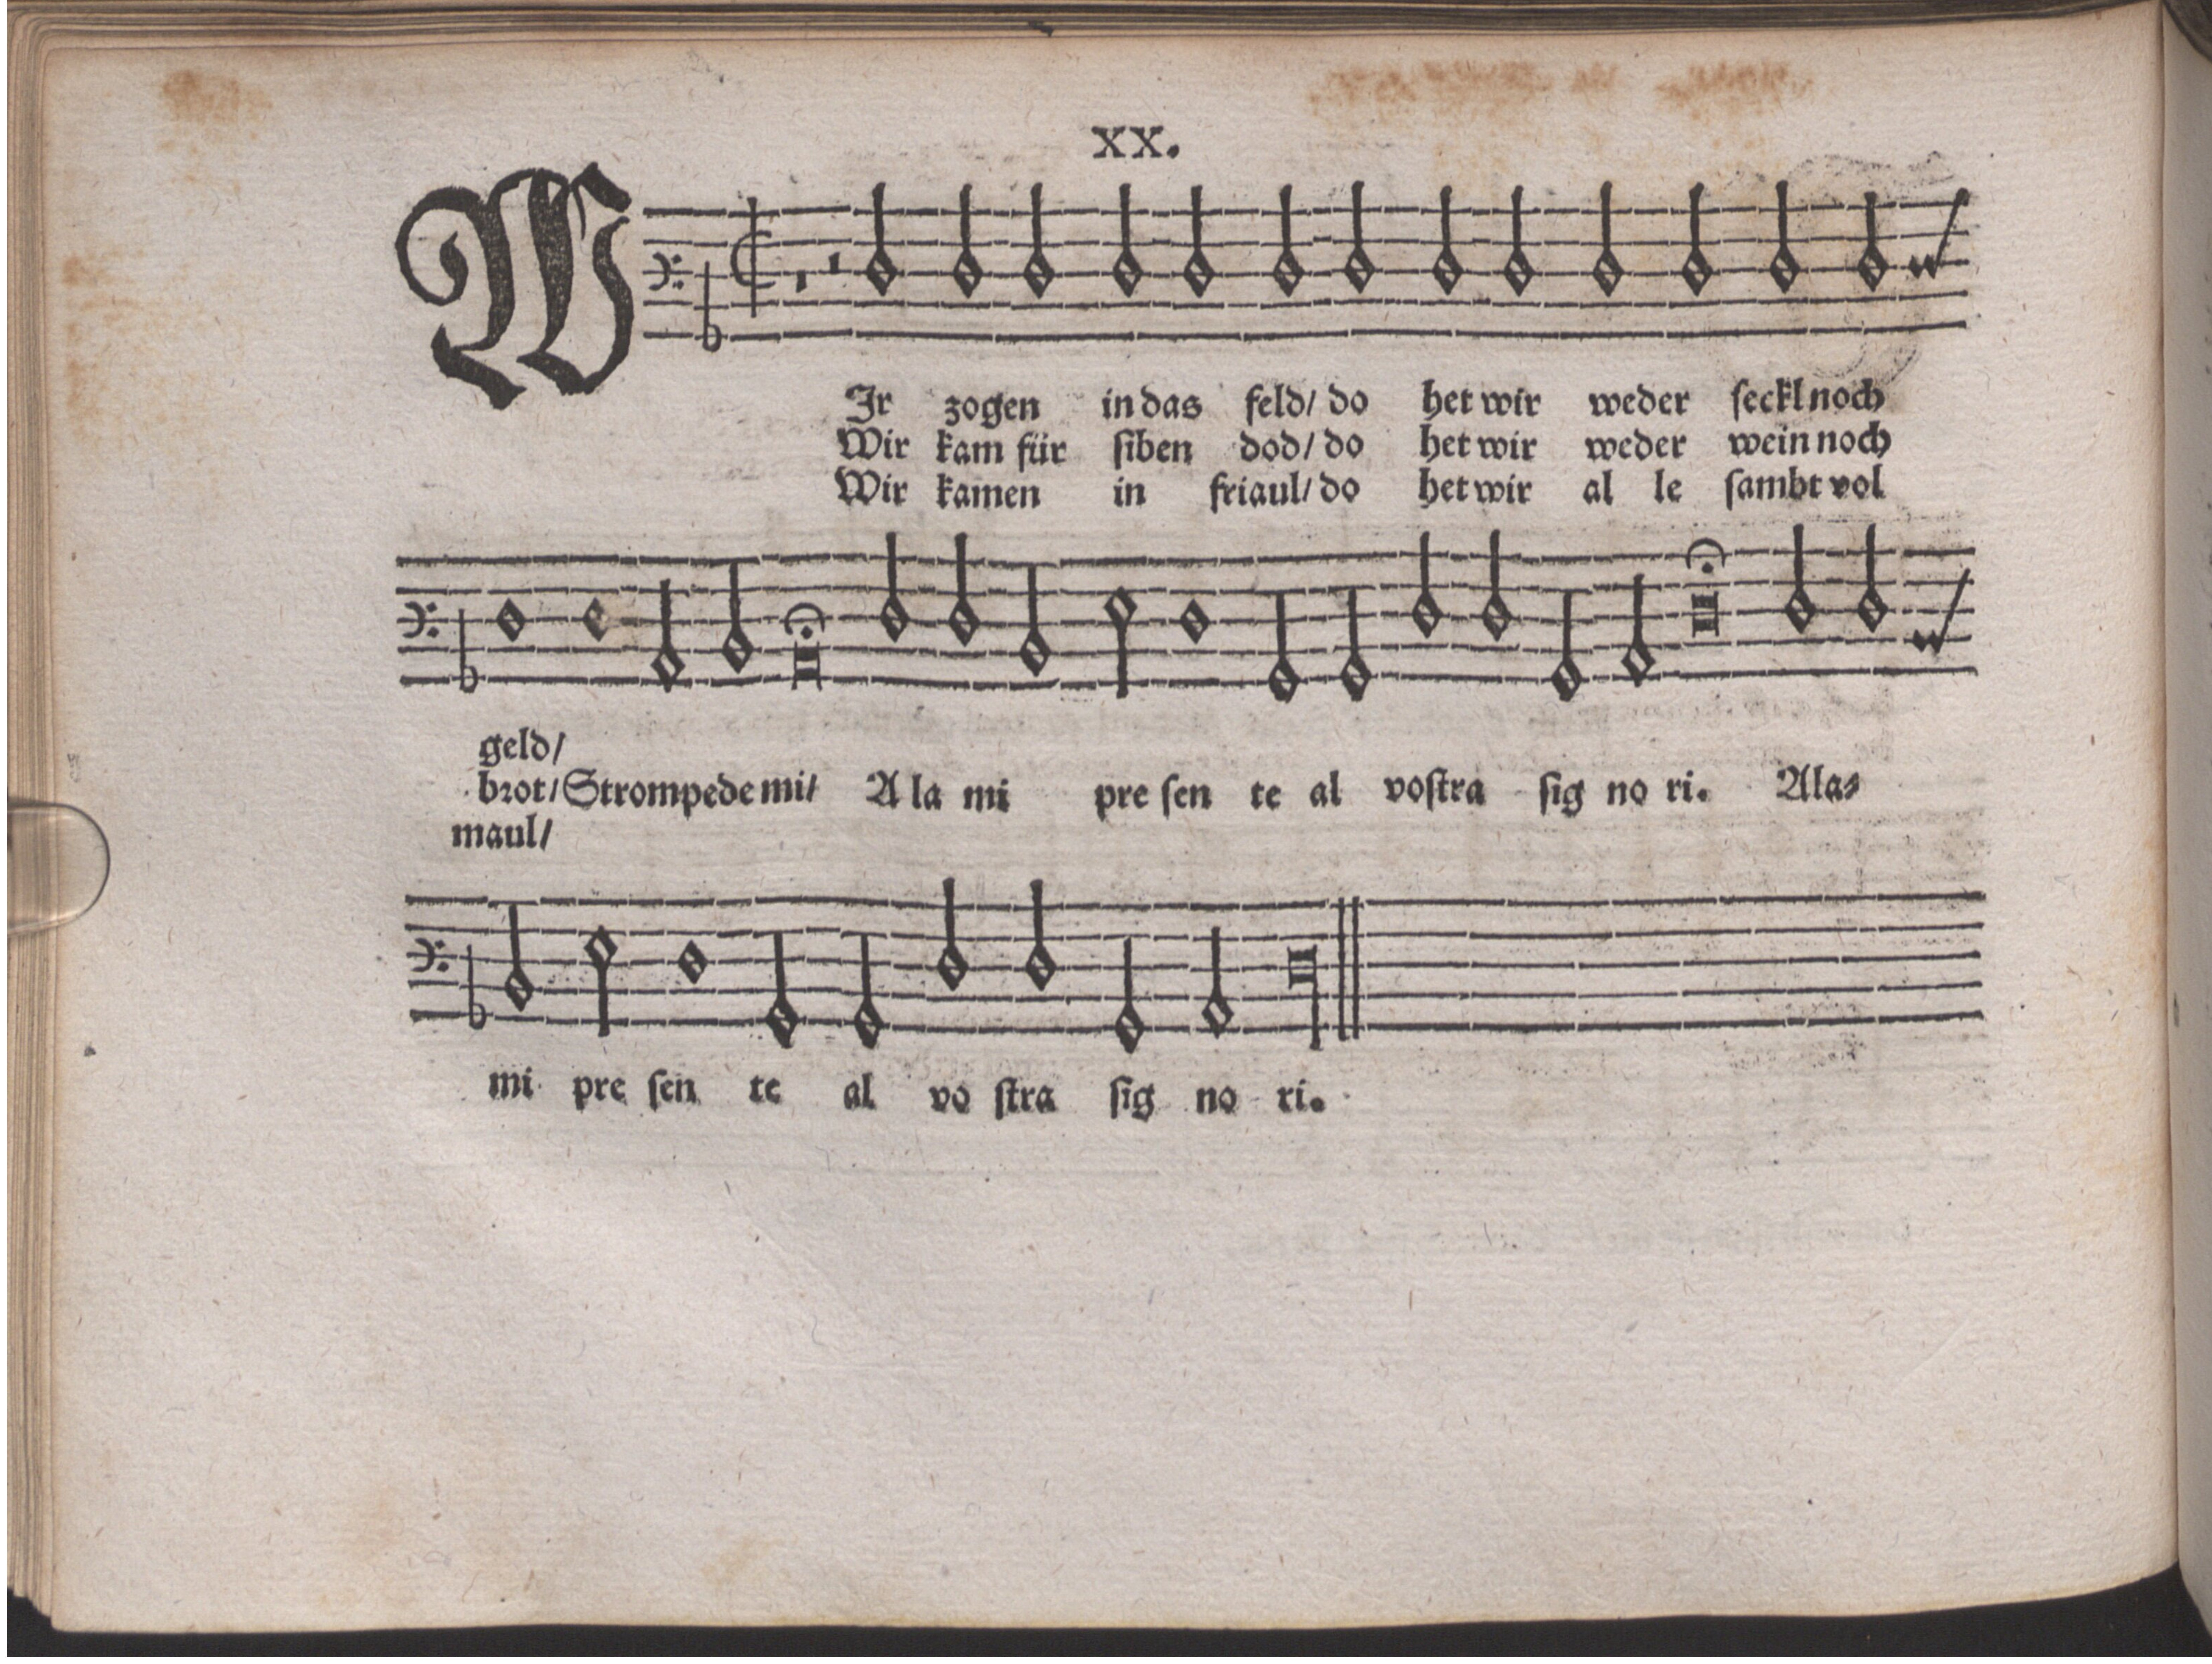 XX.
WIr zogen in das feld/ do het wir weder ſeckl noch
Wir kam für ſiben dod/ do het wir weder wein noch
Wir kamen in friaul/ do het wir al le ſambt vol
geld/
brot/ Strompede mi/ A la mi pre ſen te al voſtra ſig no ri. Alas
maul/
mi pre ſen te al vo ſtra ſig no ri.